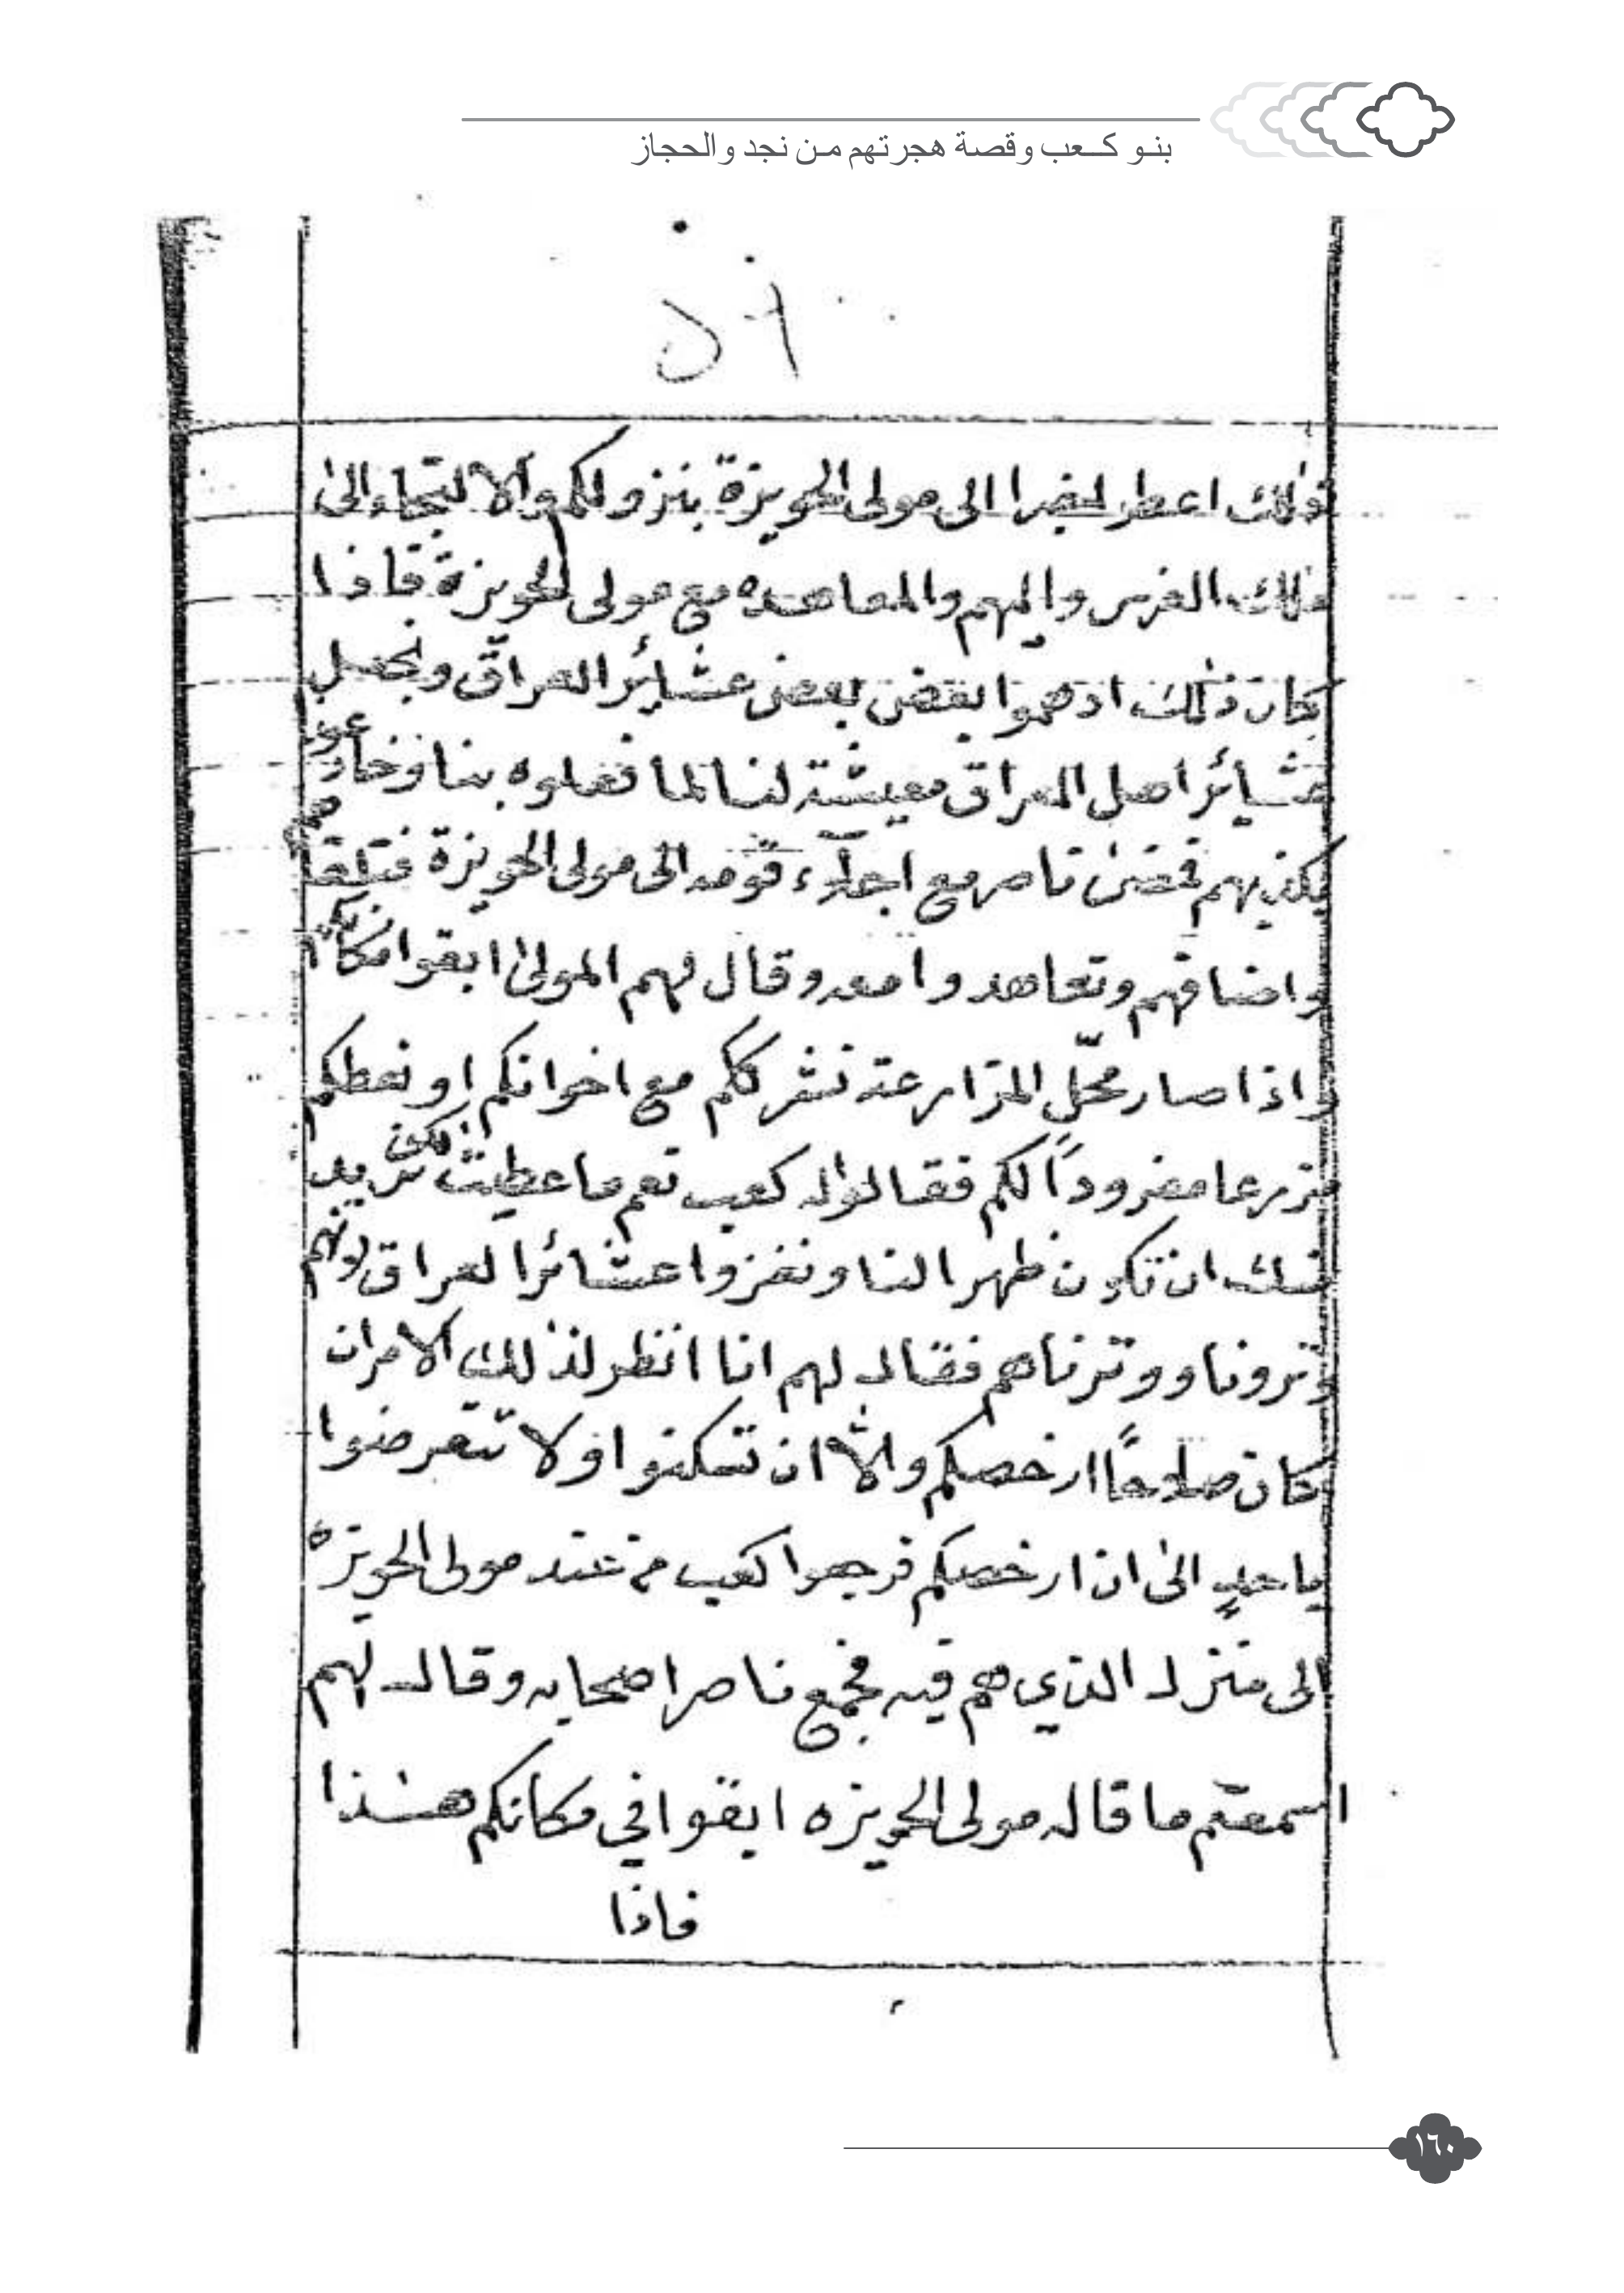 بنو كعب وقصة هجرتهم من نجد والحجاز
ذلك اعطر لخبرا الى مولى الحويزة بنزولكم والالتجاء الى
ملك الفرس واليهم والمعاهده مع مولى الحويزة فاذا
كان ذلك ادهموا بعض بعض عشائر العراق ونجعل
عشائر اهل العراق معيشة لنا لما فعلوه بنا
بكذبهم فمضى ناصر مع اجلاء قومه الى مولى الحويزة فتلقاهم
واضافهم وتعاهدوا معه وقال لهم المولى ابقوا مكانكم
واذا صار محلّ المزارعة نشرككم مع اخوانكم او نعطكم
مزرعا مفروداً لكم فقالوا له كعب نعم ما عطيت لكن نريد
منك ان تكون ظهرا لنا ونغزوا عشائر العراق لانهم
وترونا ووترناهم فقال لهم انا انظر لذلك الامر ان
كان صلاحاً ارخصكم والّا ان تسكنوا ولا تتعرضوا
باحدٍ الى ان ارخصكم فرجعوا كعب من عند مولى الحويزه
الى منزل الذي هم فيه فجمع ناصر اصحابه وقال لهم
اسمعتم ما قاله مولى الحويزه ابقوا في مكانكم هذا
فاذا
١٦٠